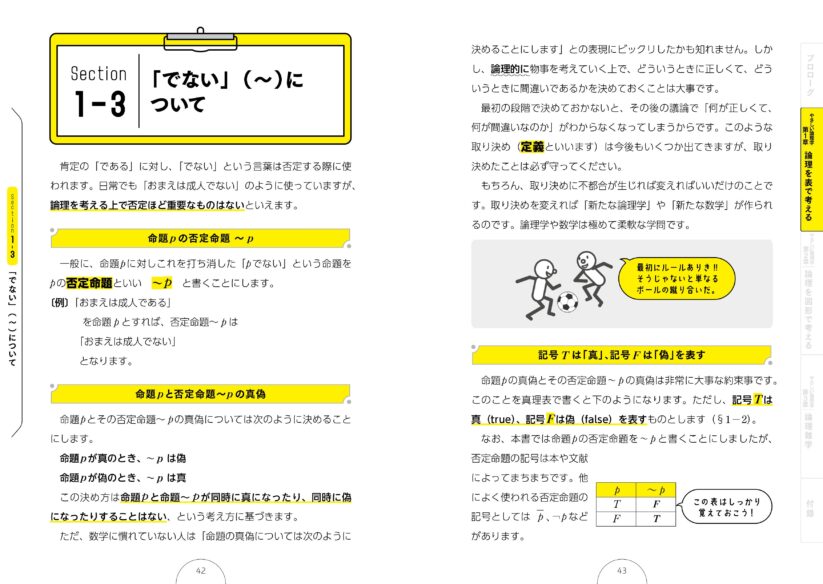 Section
1-3
「でない」（～）に
ついて
肯定の「である」に対し、「でない」という言葉は否定する際に使
われます。日常でも「おまえは成人でない」のように使っていますが、
論理を考える上で否定ほど重要なものはないといえます。
命題pの否定命題 ～p
一般に、命題pに対しこれを打ち消した「pでない」という命題を
pの否定命題といい ～p と書くことにします。
〔例〕「おまえは成人である」
を命題pとすれば、否定命題～pは
「おまえは成人でない」
となります。
命題pと否定命題～pの真偽
命題pとその否定命題～pの真偽については次のように決めること
にします。
命題pが真のとき、～pは偽
命題pが偽のとき、～pは真
この決め方は命題pと命題～pが同時に真になったり、同時に偽
になったりすることはない、という考え方に基づきます。
ただ、数学に慣れていない人は「命題の真偽については次のように
42
Section 1-3 「でない」（～）について
決めることにします」との表現にビックリしたかも知れません。しか
し、論理的に物事を考えていく上で、どういうときに正しくて、どう
いうときに間違いであるかを決めておくことは大事です。
最初の段階で決めておかないと、その後の議論で「何が正しくて、
何が間違いなのか」がわからなくなってしまうからです。このような
取り決め（定義といいます）は今後もいくつか出てきますが、取り
決めたことは必ず守ってください。
もちろん、取り決めに不都合が生じれば変えればいいだけのことで
す。取り決めを変えれば「新たな論理学」や「新たな数学」が作られ
るのです。論理学や数学は極めて柔軟な学問です。
最初にルールありき!!
そうじゃないと単なる
ボールの蹴り合いだ。
記号Tは「真」、記号Fは「偽」を表す
命題pの真偽とその否定命題～pの真偽は非常に大事な約束事です。
このことを真理表で書くと下のようになります。ただし、記号Tは
真（true）、記号Fは偽（false）を表すものとします（§1－2）。
なお、本書では命題pの否定命題を～pと書くことにしましたが、
否定命題の記号は本や文献
によってまちまちです。他
によく使われる否定命題の
記号としては p̄、¬pなど
があります。
p ～p
T F
F T
この表はしっかり
覚えておこう!
43
プロローグ
やさしい論理学
第1章 論理を表で考える
論理を図形で考える
論理雑学
付録